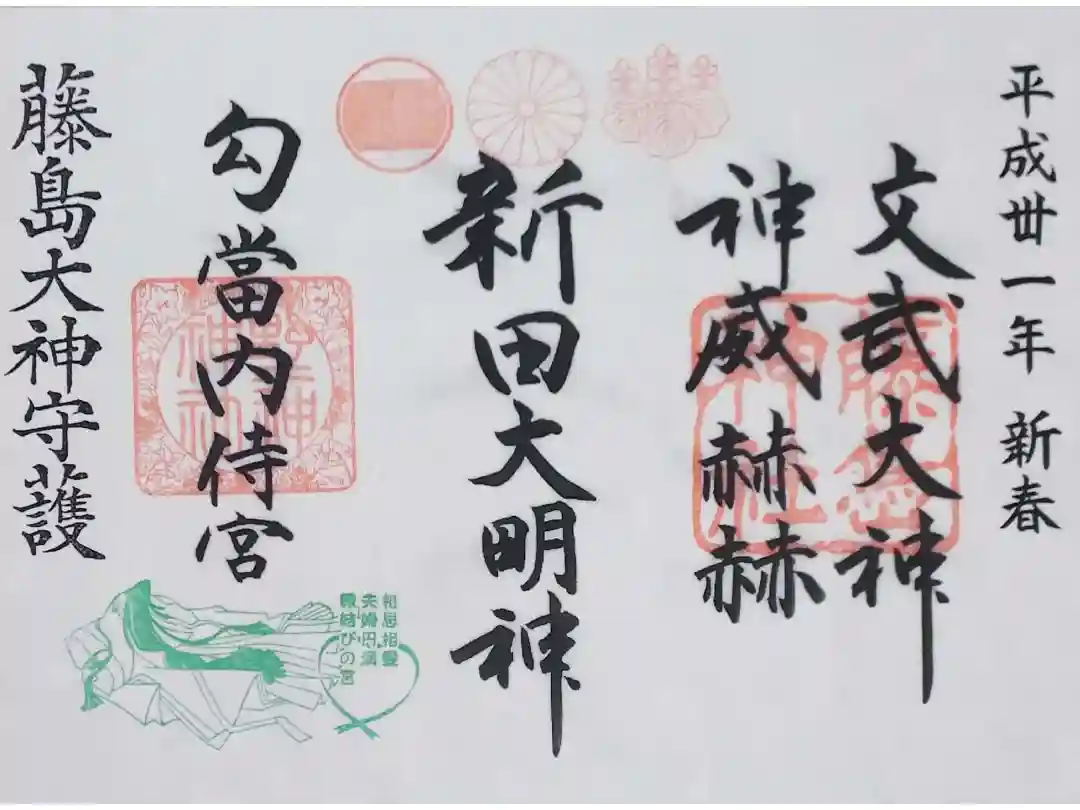 平成丗一年 新春
文武大神
神威赫赫
新田大明神
勾當内侍宮
藤島大神守護
藤島
神社
相思相愛
夫婦円満
縁結びの宮